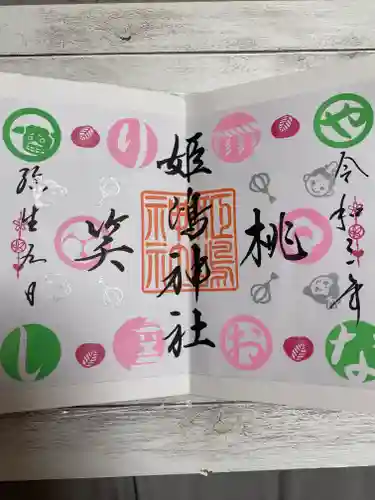 令和三年
桃
姫嶋神社
姫嶋神社
笑
弥生
日
や
り
な
お
し